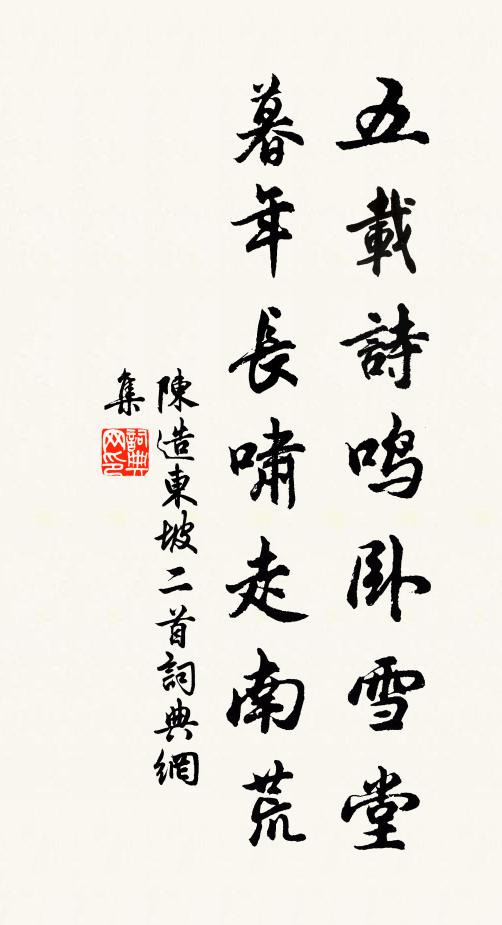 五載詩鳴卧雪堂
暮年長嘯走南荒
陳造東坡二首詞典網
集
詞典
网印